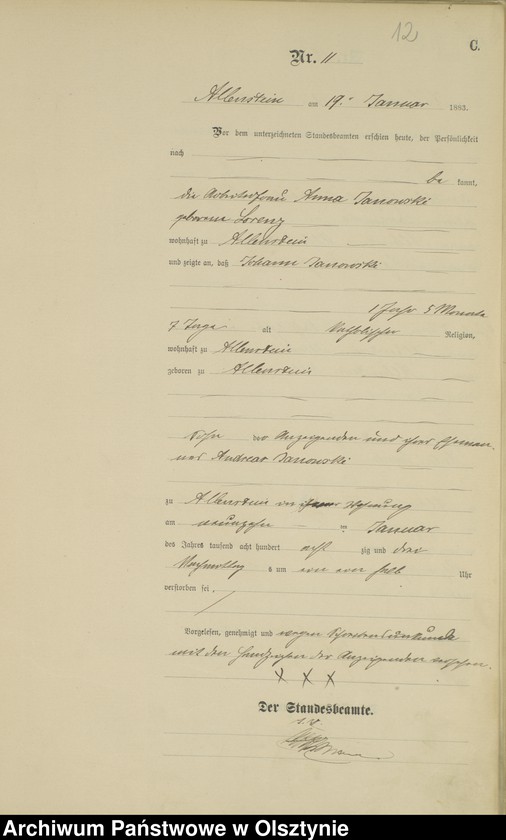 12
C.
Nr. 11
Allenstein am 19. Januar 1883.
Vor dem unterzeichneten Standesbeamten erschien heute, der Persönlichkeit
nach
be kannt,
die Arbeiterfrau Anna Janowski
geborene Lorenz
wohnhaft zu Allenstein
und zeigte an, daß Johann Janowski
1 Jahr 5 Monate
7 Tage alt katholischer Religion,
wohnhaft zu Allenstein
geboren zu Allenstein
Sohn Anzeigenden und ihres Eheman-
nes Andreas Janowski
zu Allenstein in Wohnung
am neunzehn ten Januar
des Jahres tausend acht hundert acht zig und drei
Nachmittag s um halb Uhr
verstorben sei.
Vorgelesen, genehmigt und wegen Schreibensunkunde
mit den Handzeichen der Anzeigenden versehen.
X X X
Der Standesbeamte.
i. V.
Archiwum Państwowe w Olsztynie